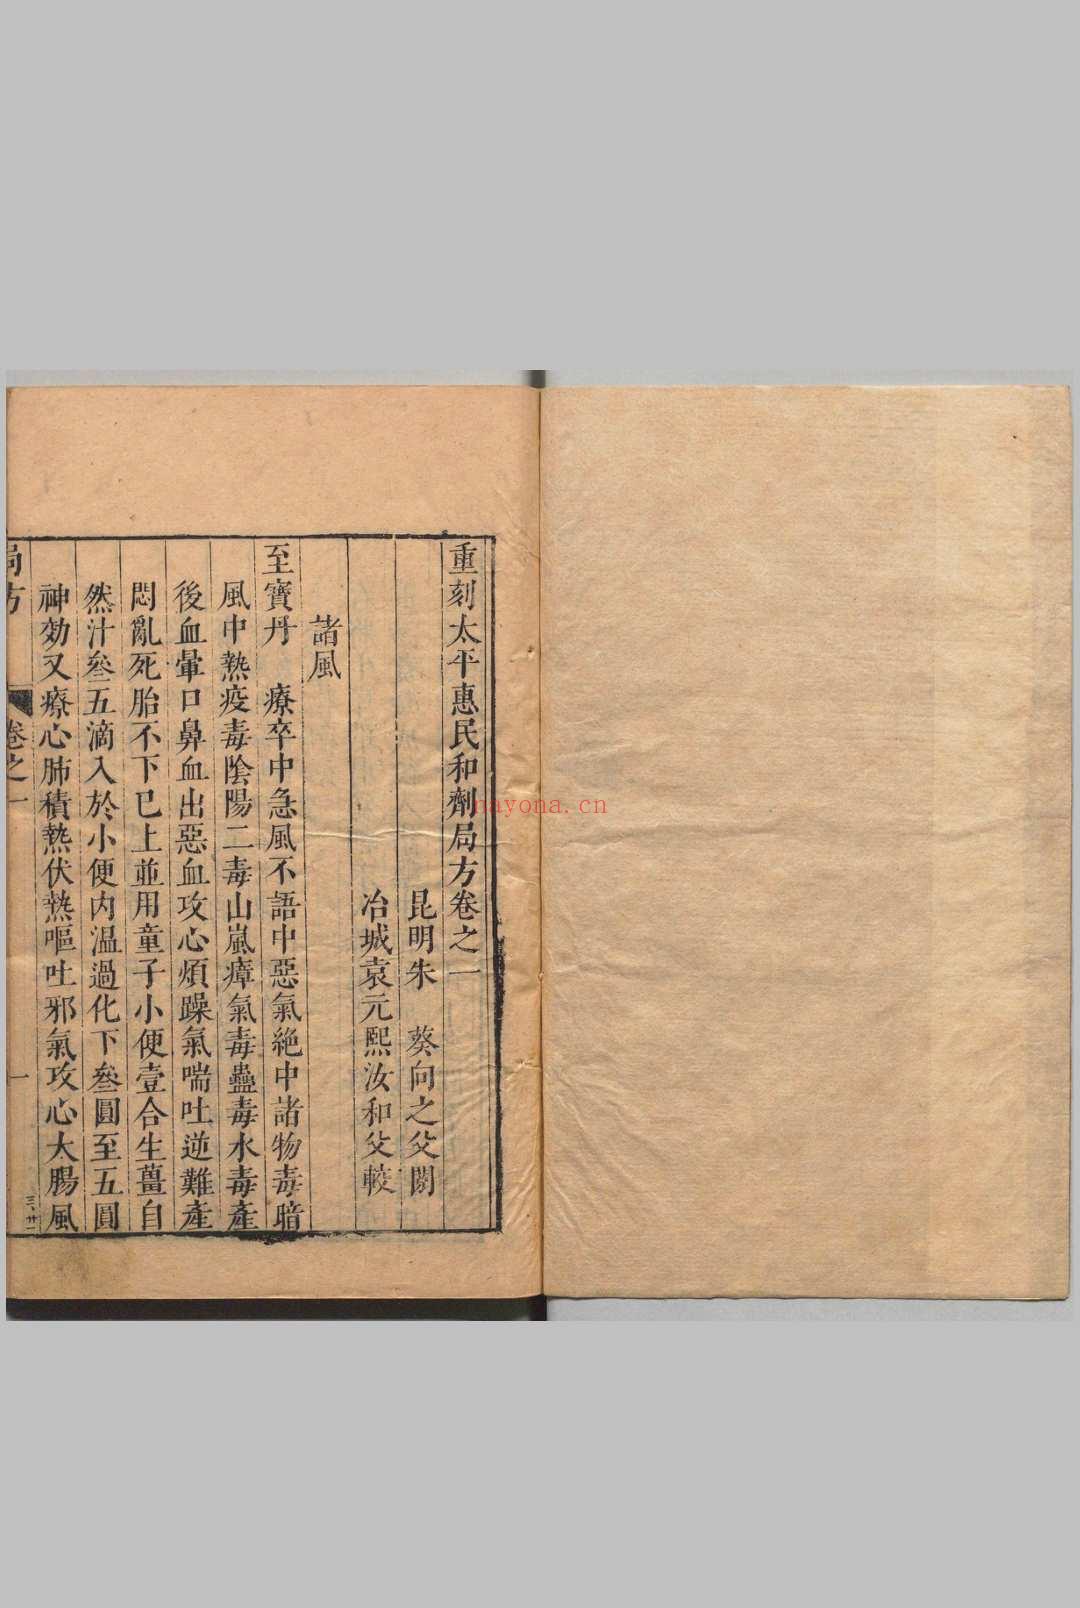 重刻太平惠民和劑局方卷之一
昆明朱　葵向之父閱
冶城袁元熙汝和父較
諸風
至寶丹　療卒中急風不語中惡氣絶中諸物毒暗
風中熱疫毒陰陽二毒山嵐瘴氣毒蠱毒水毒產
後血暈口鼻血出惡血攻心煩躁氣喘吐逆難產
悶亂死胎不下已上並用童子小便壹合生薑自
然汁叄五滴入於小便内温過化下叄圓至五圓
神効又療心肺積熱伏熱嘔吐邪氣攻心大腸風
局方　卷之一　一
三、廿一
nayona.cn